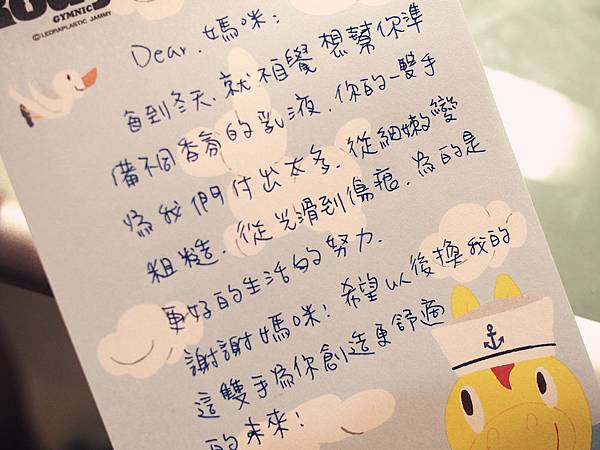 GYMNIC
© LEDRAPLASTIC JAMMY
Dear. 媽咪:
每到冬天.就不自覺想幫你準
備不同香氛的乳液.你的一雙手
為我們付出太多.從細嫩變
粗糙.從光滑到傷痕.為的是
更好的生活的努力.
謝謝媽咪!希望以後換我的
這雙手為你創造更舒適
的未來!